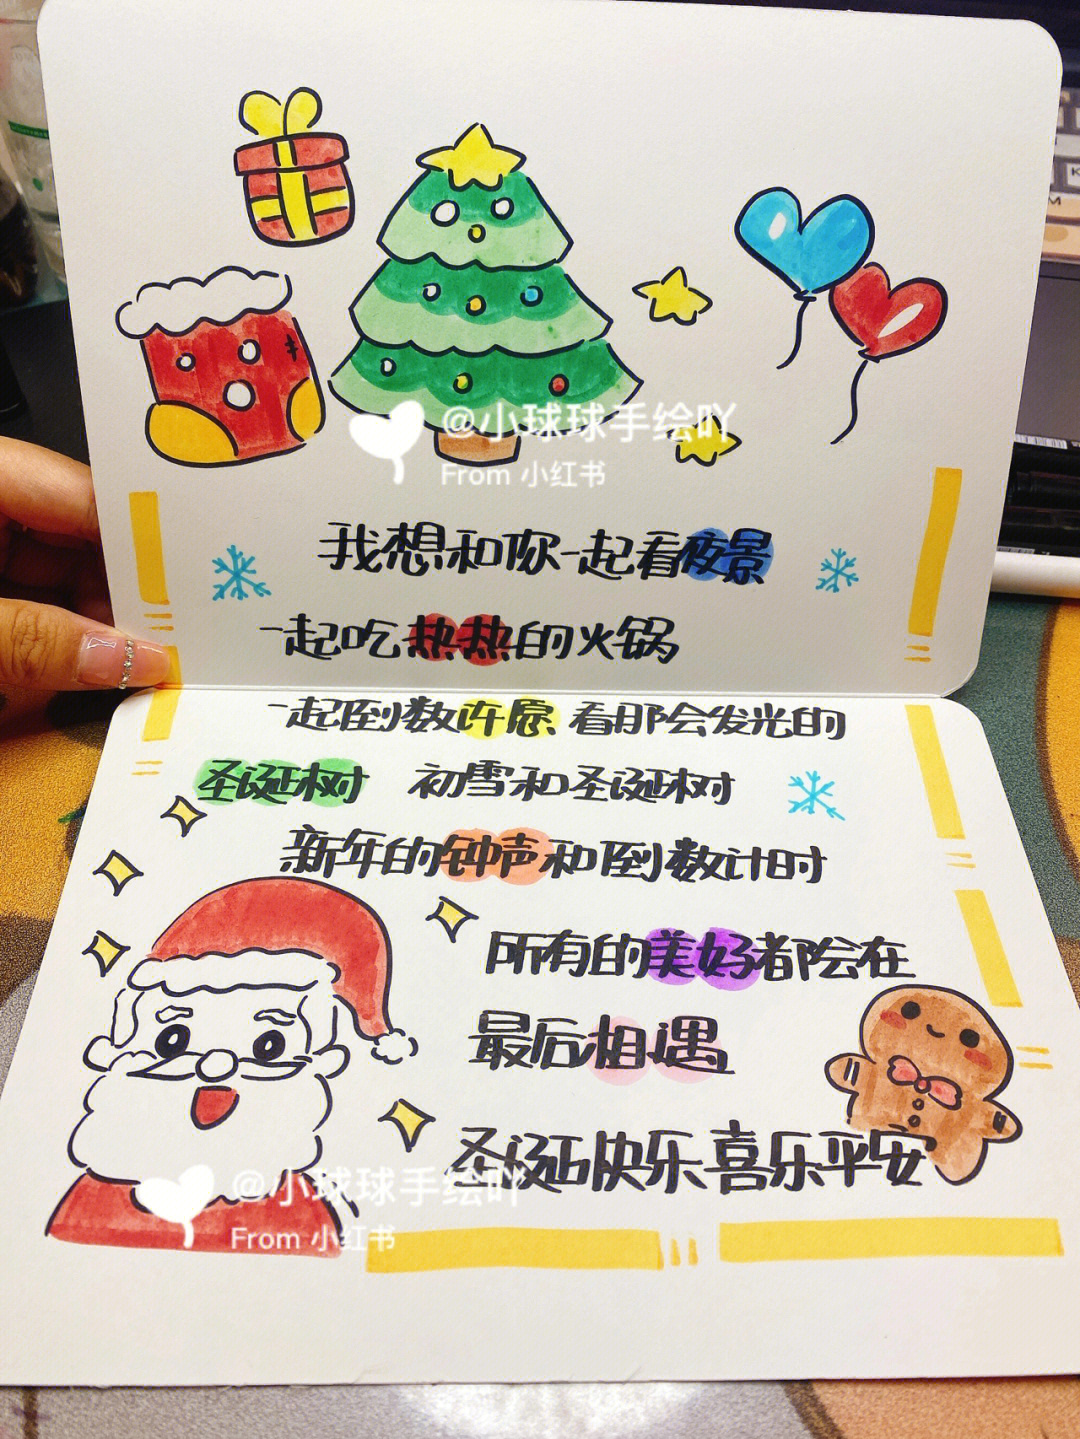 @小球球手绘吖
From 小红书
我想和你一起看夜景
一起吃热热的火锅
一起倒数许愿 看那会发光的
圣诞树 初雪和圣诞树
新年的钟声和倒数计时
所有的美好都会在
最后相遇
圣诞快乐喜乐平安
@小球球手绘吖
From 小红书